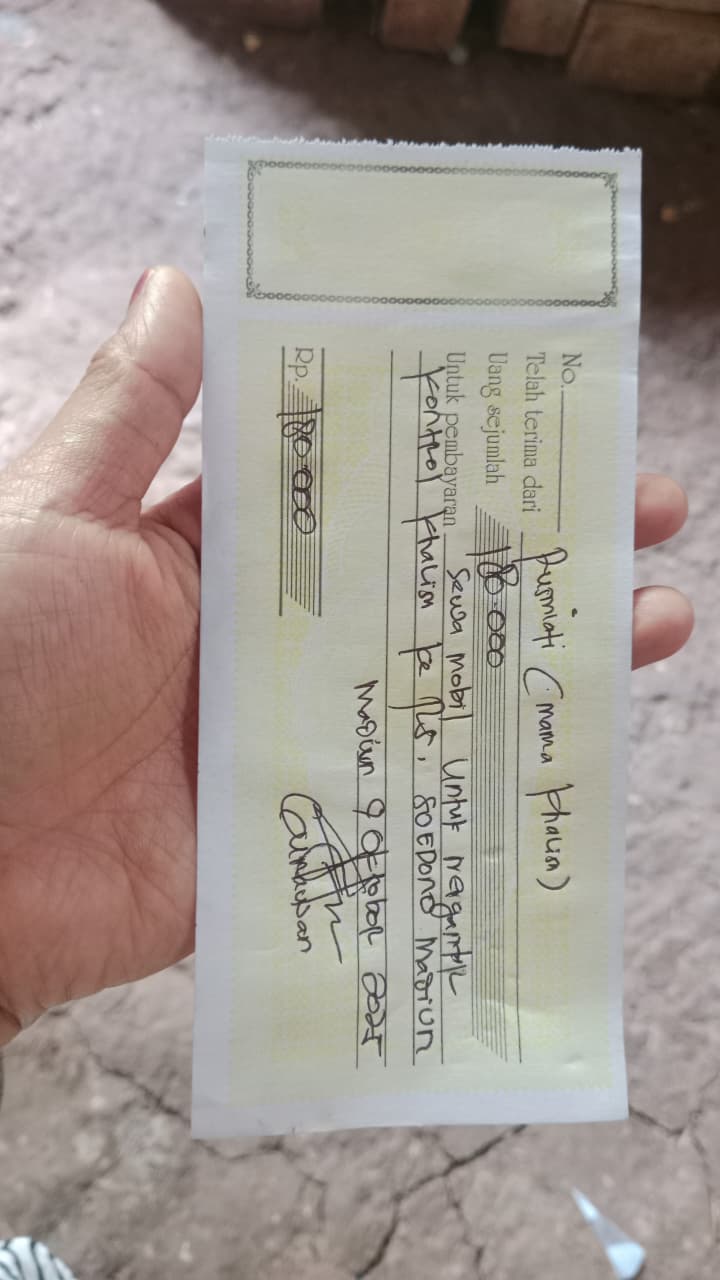 No.
Telah terima dari Rusmiati (mama Khalisa)
Uang sejumlah 180.000
Untuk pembayaran Sewa mobil Untuk mengantar
Kontrol Khalisa ke RS, SOEDONO Madiun
Madiun 9 Oktober 2025
Rp. 180.000